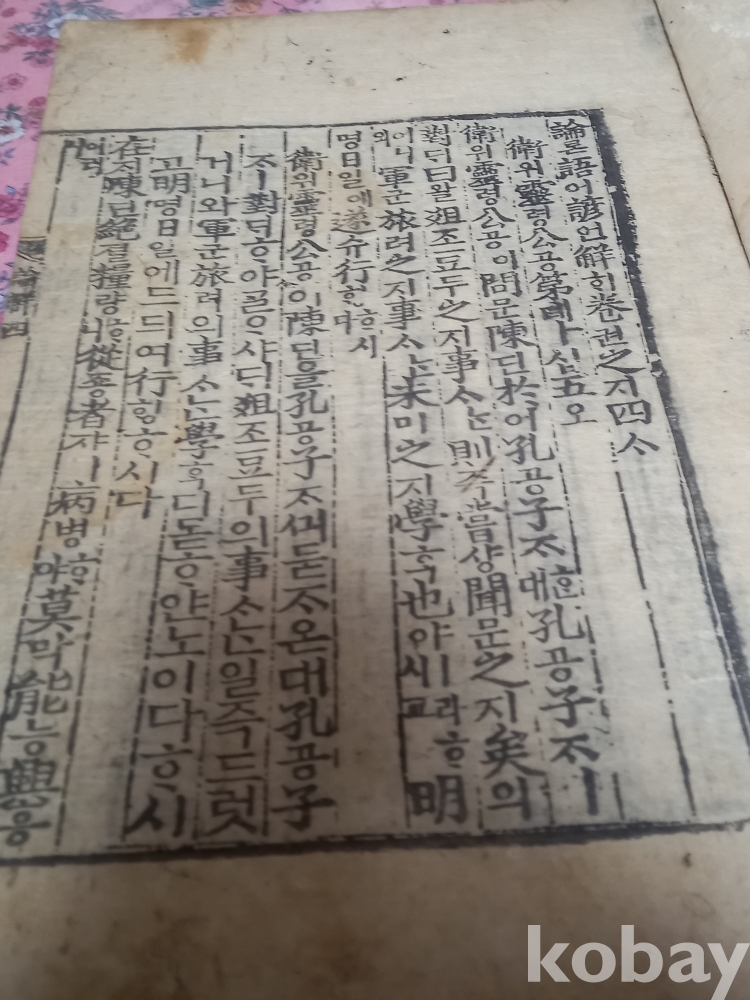 論론語어諺언解ᄒᆡ卷권之지四ᄉᆞ
衛위靈령公공第뎨十십五오
衛위靈령公공이問문陳딘於어孔공子ᄌᆞᄒᆞᆫ대孔공子ᄌᆞㅣ
對ᄃᆡ曰왈俎조豆두之지事ᄉᆞᄂᆞᆫ則즉甞샹聞문之지矣의
어니와軍군旅려之지事ᄉᆞᄂᆞᆫ未미之지學ᄒᆞᆨ也야ㅣ라ᄒᆞ시고明
명日일에遂슈行ᄒᆡᆼᄒᆞ시다
衛위靈령公공이陳딘을孔공子ᄌᆞᄭᅴ묻ᄌᆞ온대孔공子
ᄌᆞㅣ對ᄃᆡᄒᆞ야ᄀᆞᆯᄋᆞ샤ᄃᆡ俎조豆두의事ᄉᆞᄂᆞᆫ일즉드럿
거니와軍군旅려의事ᄉᆞᄂᆞᆫ學ᄒᆞᆨ디몯ᄒᆞ얀노이다ᄒᆞ시
고明명日일에드듸여行ᄒᆡᆼᄒᆞ시다
在ᄌᆡ陳딘絶졀糧량ᄒᆞ니從죵者쟈ㅣ病병ᄒᆞ야莫막能능興흥
kobay